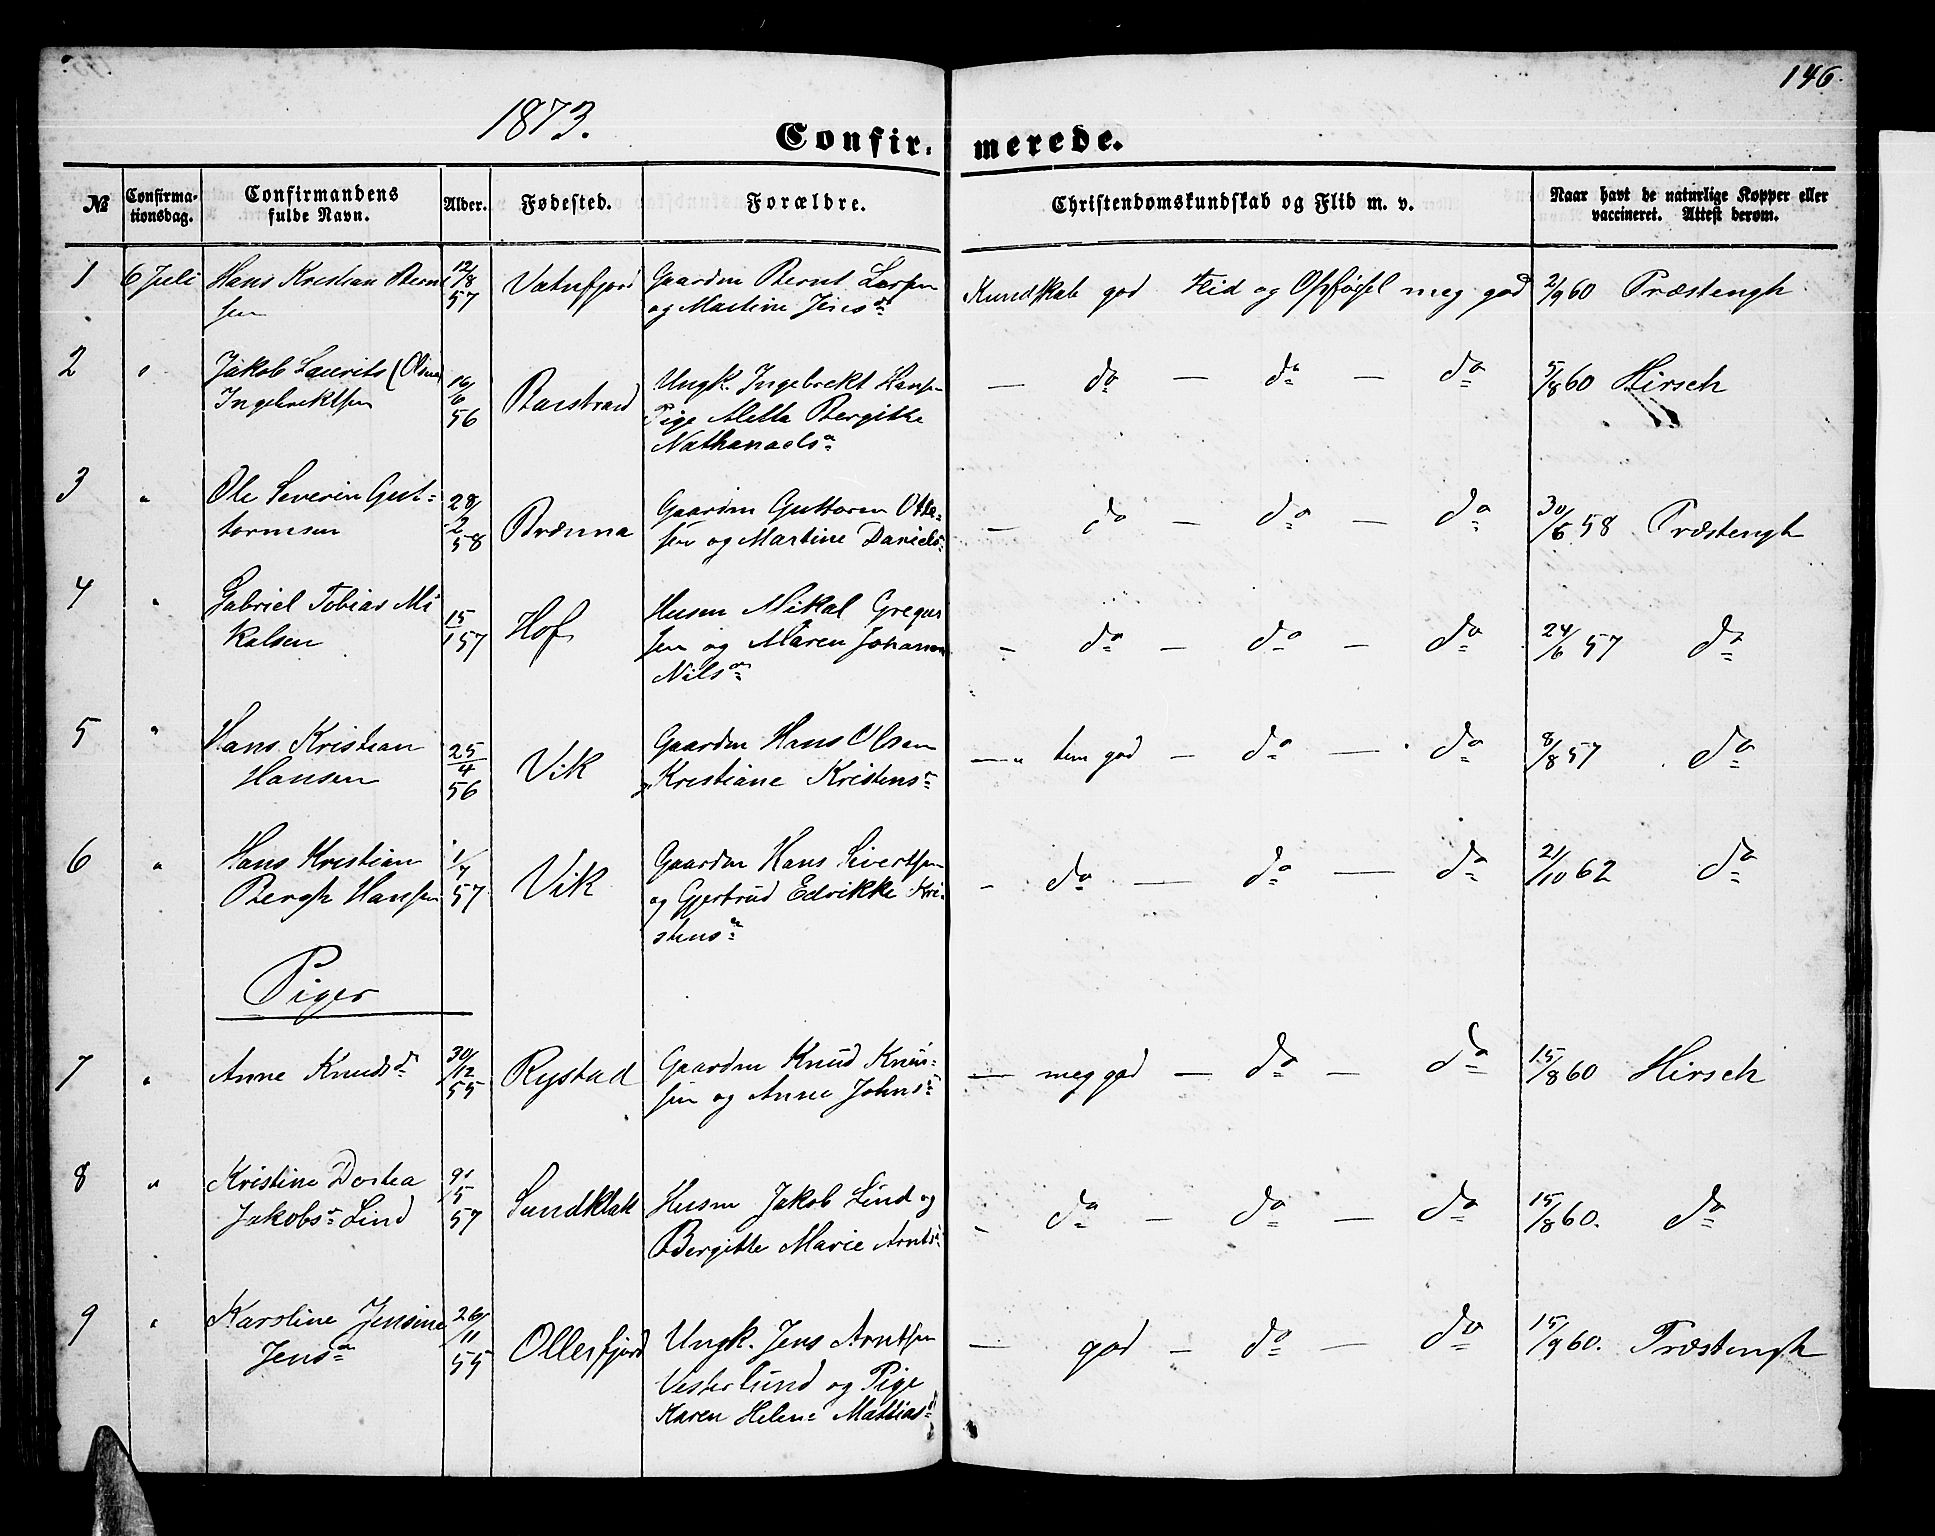 146.
1873.
Confir- merede.
№
Confirma-
tionsdag.
Confirmandens
fulde Navn.
Alder.
Fødested.
Forældre.
Christendomskundskab og Flid m. v.
Naar havt de naturlige Kopper eller
vaccineret. Attest derom.
1 6 Juli Hans Kristian Bernt
sen
12/8
57
Vatnfjord
Gaardm Bernt Larsen
og Martine Jensd
Kundskab god Flid og Opførsel meg god
2/9 60 Præstengh
2 " Jakob Laurits (Olsen)
Ingebrektsen
16/6
56
Barstrand
Ungk. Ingebrekt Hansen
Pige Aletta Bergitte
Nathanaelsd
— do — do — do
5/8 60 Hirsch
3 " Ole Severin Gut-
tormsen
28/2
58
Brænna
Gaardm Guttorm Otte-
sen og Martine Daniels-
— do — do — do
30/6 58 Præstengh
4 " Gabriel Tobias Mi
kalsen
15/1 57
Hof
Husm Mikal Gregus
sen og Maren Johanna
Nilsd
— do — do — do
24/6 57 do
5 " Hans Kristian
Hansen
25/4
56
Vik
Gaardm Hans Olsen
og Kristiane Kristensd
— tem god — do — do
8/8 57 do
6 " Hans Kristian
Bergh Hansen
1/7
57
Vik
Gaardm Hans Sivertsen
og Gjertrud Edvikke Kri-
stensd
- do — do — do
21/10 62 do
Piger
7 " Anne Knudsd
30/12
55
Rystad
Gaardm Knud Knud-
sen og Anne Johnsd
— meg god — do — do
15/8 60 Hirsch
8 " Kristine Dortea
Jakobsd Lind
/5
57
Sundklak
Husm Jakob Lind og
Bergitte Marie Arntsd
- do — do — do
15/8 60. do
9 " Karstine Jensine
Jensd
26/11
55
Ollerfjord
Ungk. Jens Arntsen
Vesterlund og Pige
Karen Helene Mattiasd
— god — do — do
15/9 60. Præstengh